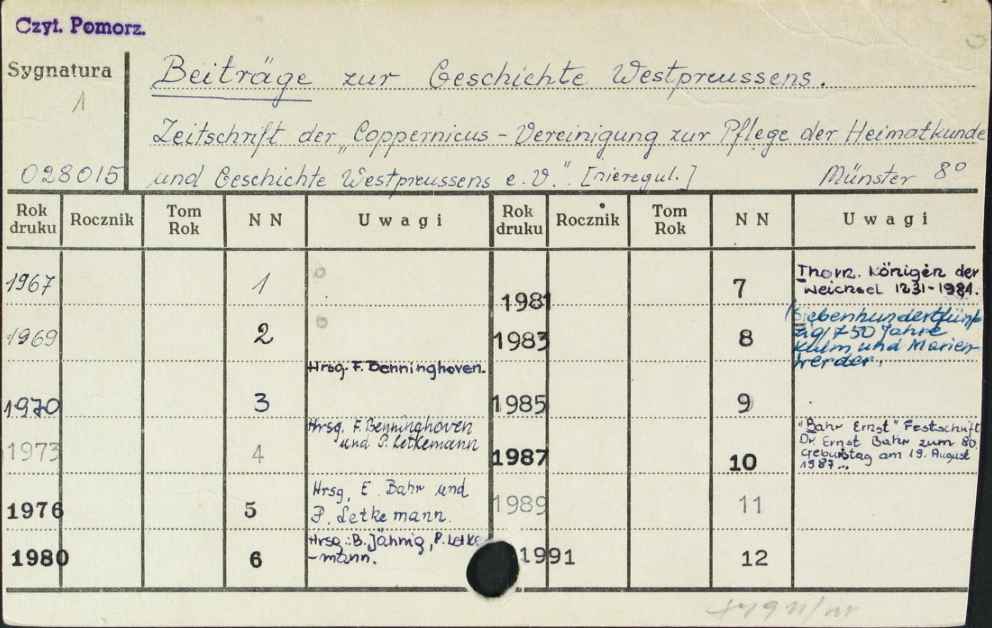 Czyt. Pomorz.
Sygnatura
1
028015
Beiträge zur Geschichte Westpreussens.
Zeitschrift der „Coppernicus - Vereinigung zur Pflege der Heimatkunde
und Geschichte Westpreussens e. V.". [nieregul.] Münster 8°
Rok druku Rocznik Tom Rok NN Uwagi Rok druku Rocznik Tom Rok NN Uwagi
1967 1
1969 2
1970 3 Hrsg. F. Benninghoven.
1973 4 Hrsg. F. Benninghoven
und P. Letkemann
1976 5 Hrsg. E. Bahr und
P. Letkemann.
1980 6 Hrsg.: B. Jähnig, P. Letke
-mann.
1981 7 Thorn. Königin der
Weichsel 1231-1981.
1983 8 Siebenhundertfünf
zig/750 Jahre
Kulm und Marien-
werder.
1985 9
1987 10 "Bahr Ernst" Festschrift
Dr Ernst Bahr zum 80
Geburtstag am 19. August
1987...
1989 11
1991 12